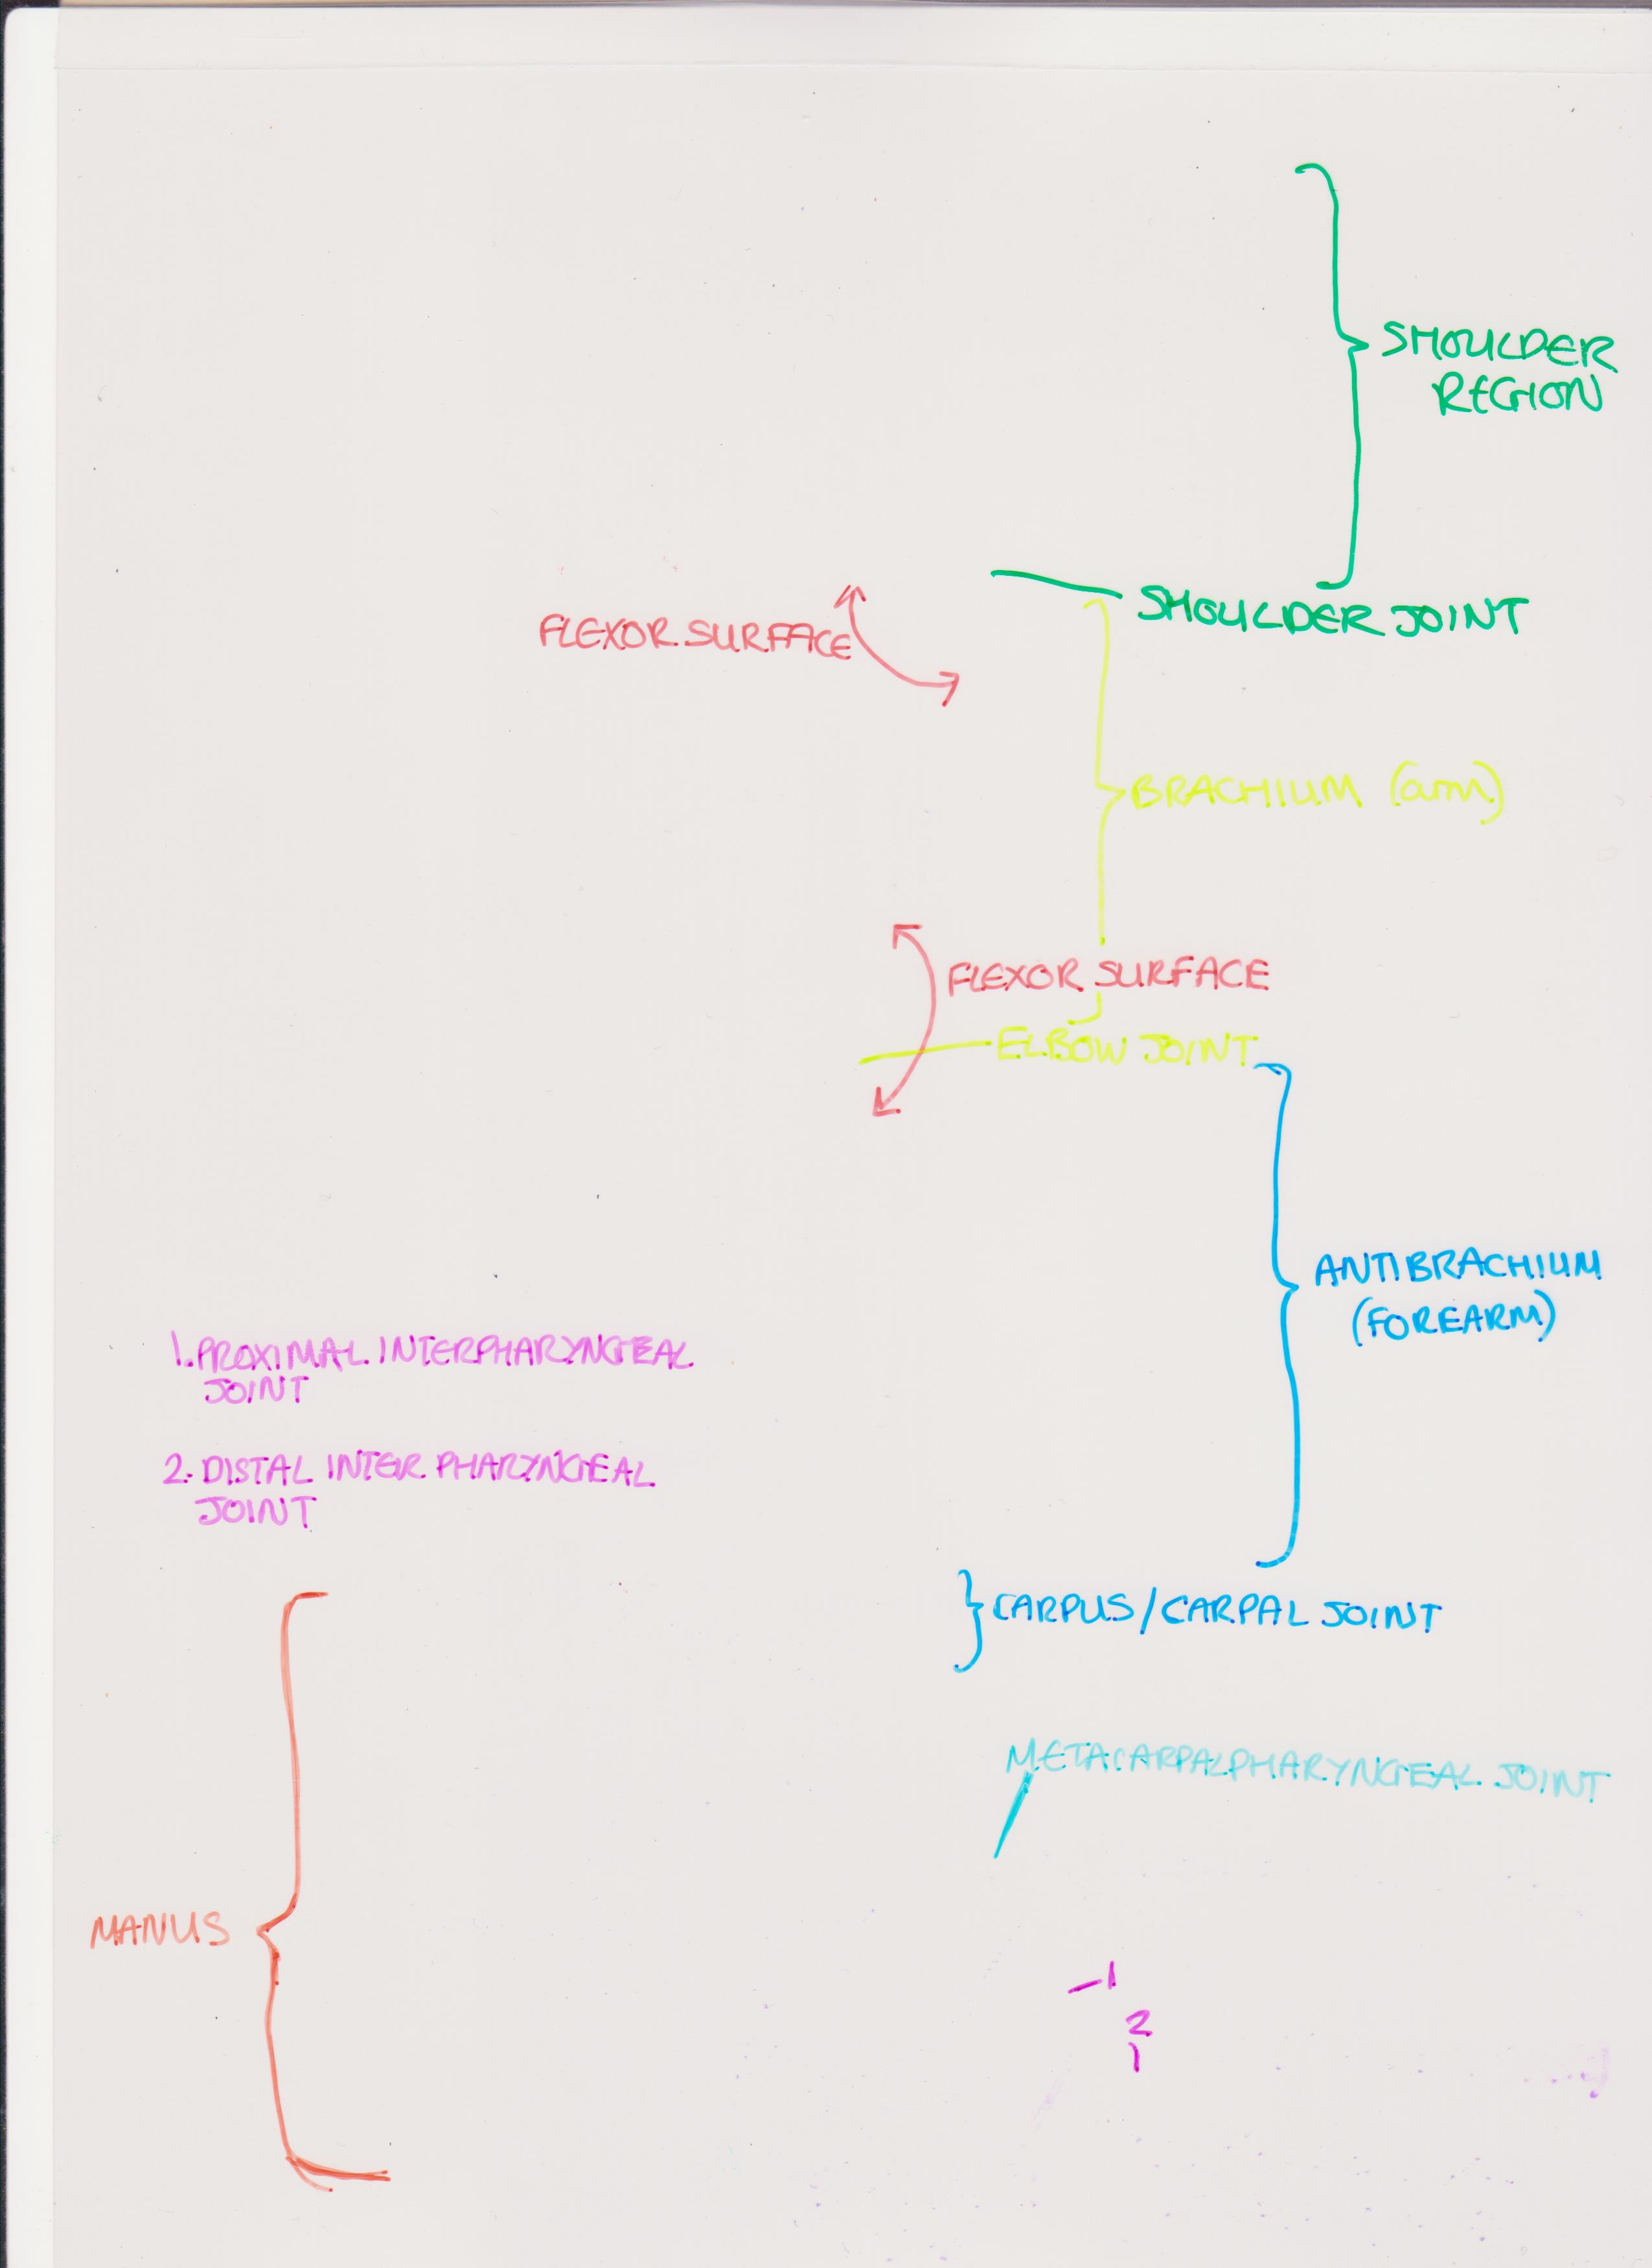 SHOULDER
REGION
SHOULDER JOINT
FLEXOR SURFACE
BRACHIUM (arm)
FLEXOR SURFACE
ELBOW JOINT
ANTIBRACHIUM
(FOREARM)
1. PROXIMAL INTERPHARYNGEAL
JOINT
2. DISTAL INTER PHARYNGEAL
JOINT
CARPUS/CARPAL JOINT
METACARPALPHARYNGEAL JOINT
MANUS
1
2